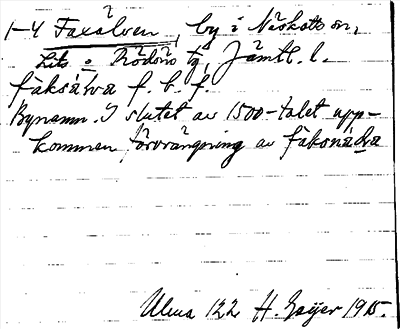 1-4 Faxälven, by i Näskotts sn,
Lits o Rödöns tg, Jämtl. l.
fàksä́lva f. b. f.
Bynamn. I slutet av 1500-talet upp-
kommen förvrängning av fàksnä́dva
Ulma 122 H. Geijer 1915.